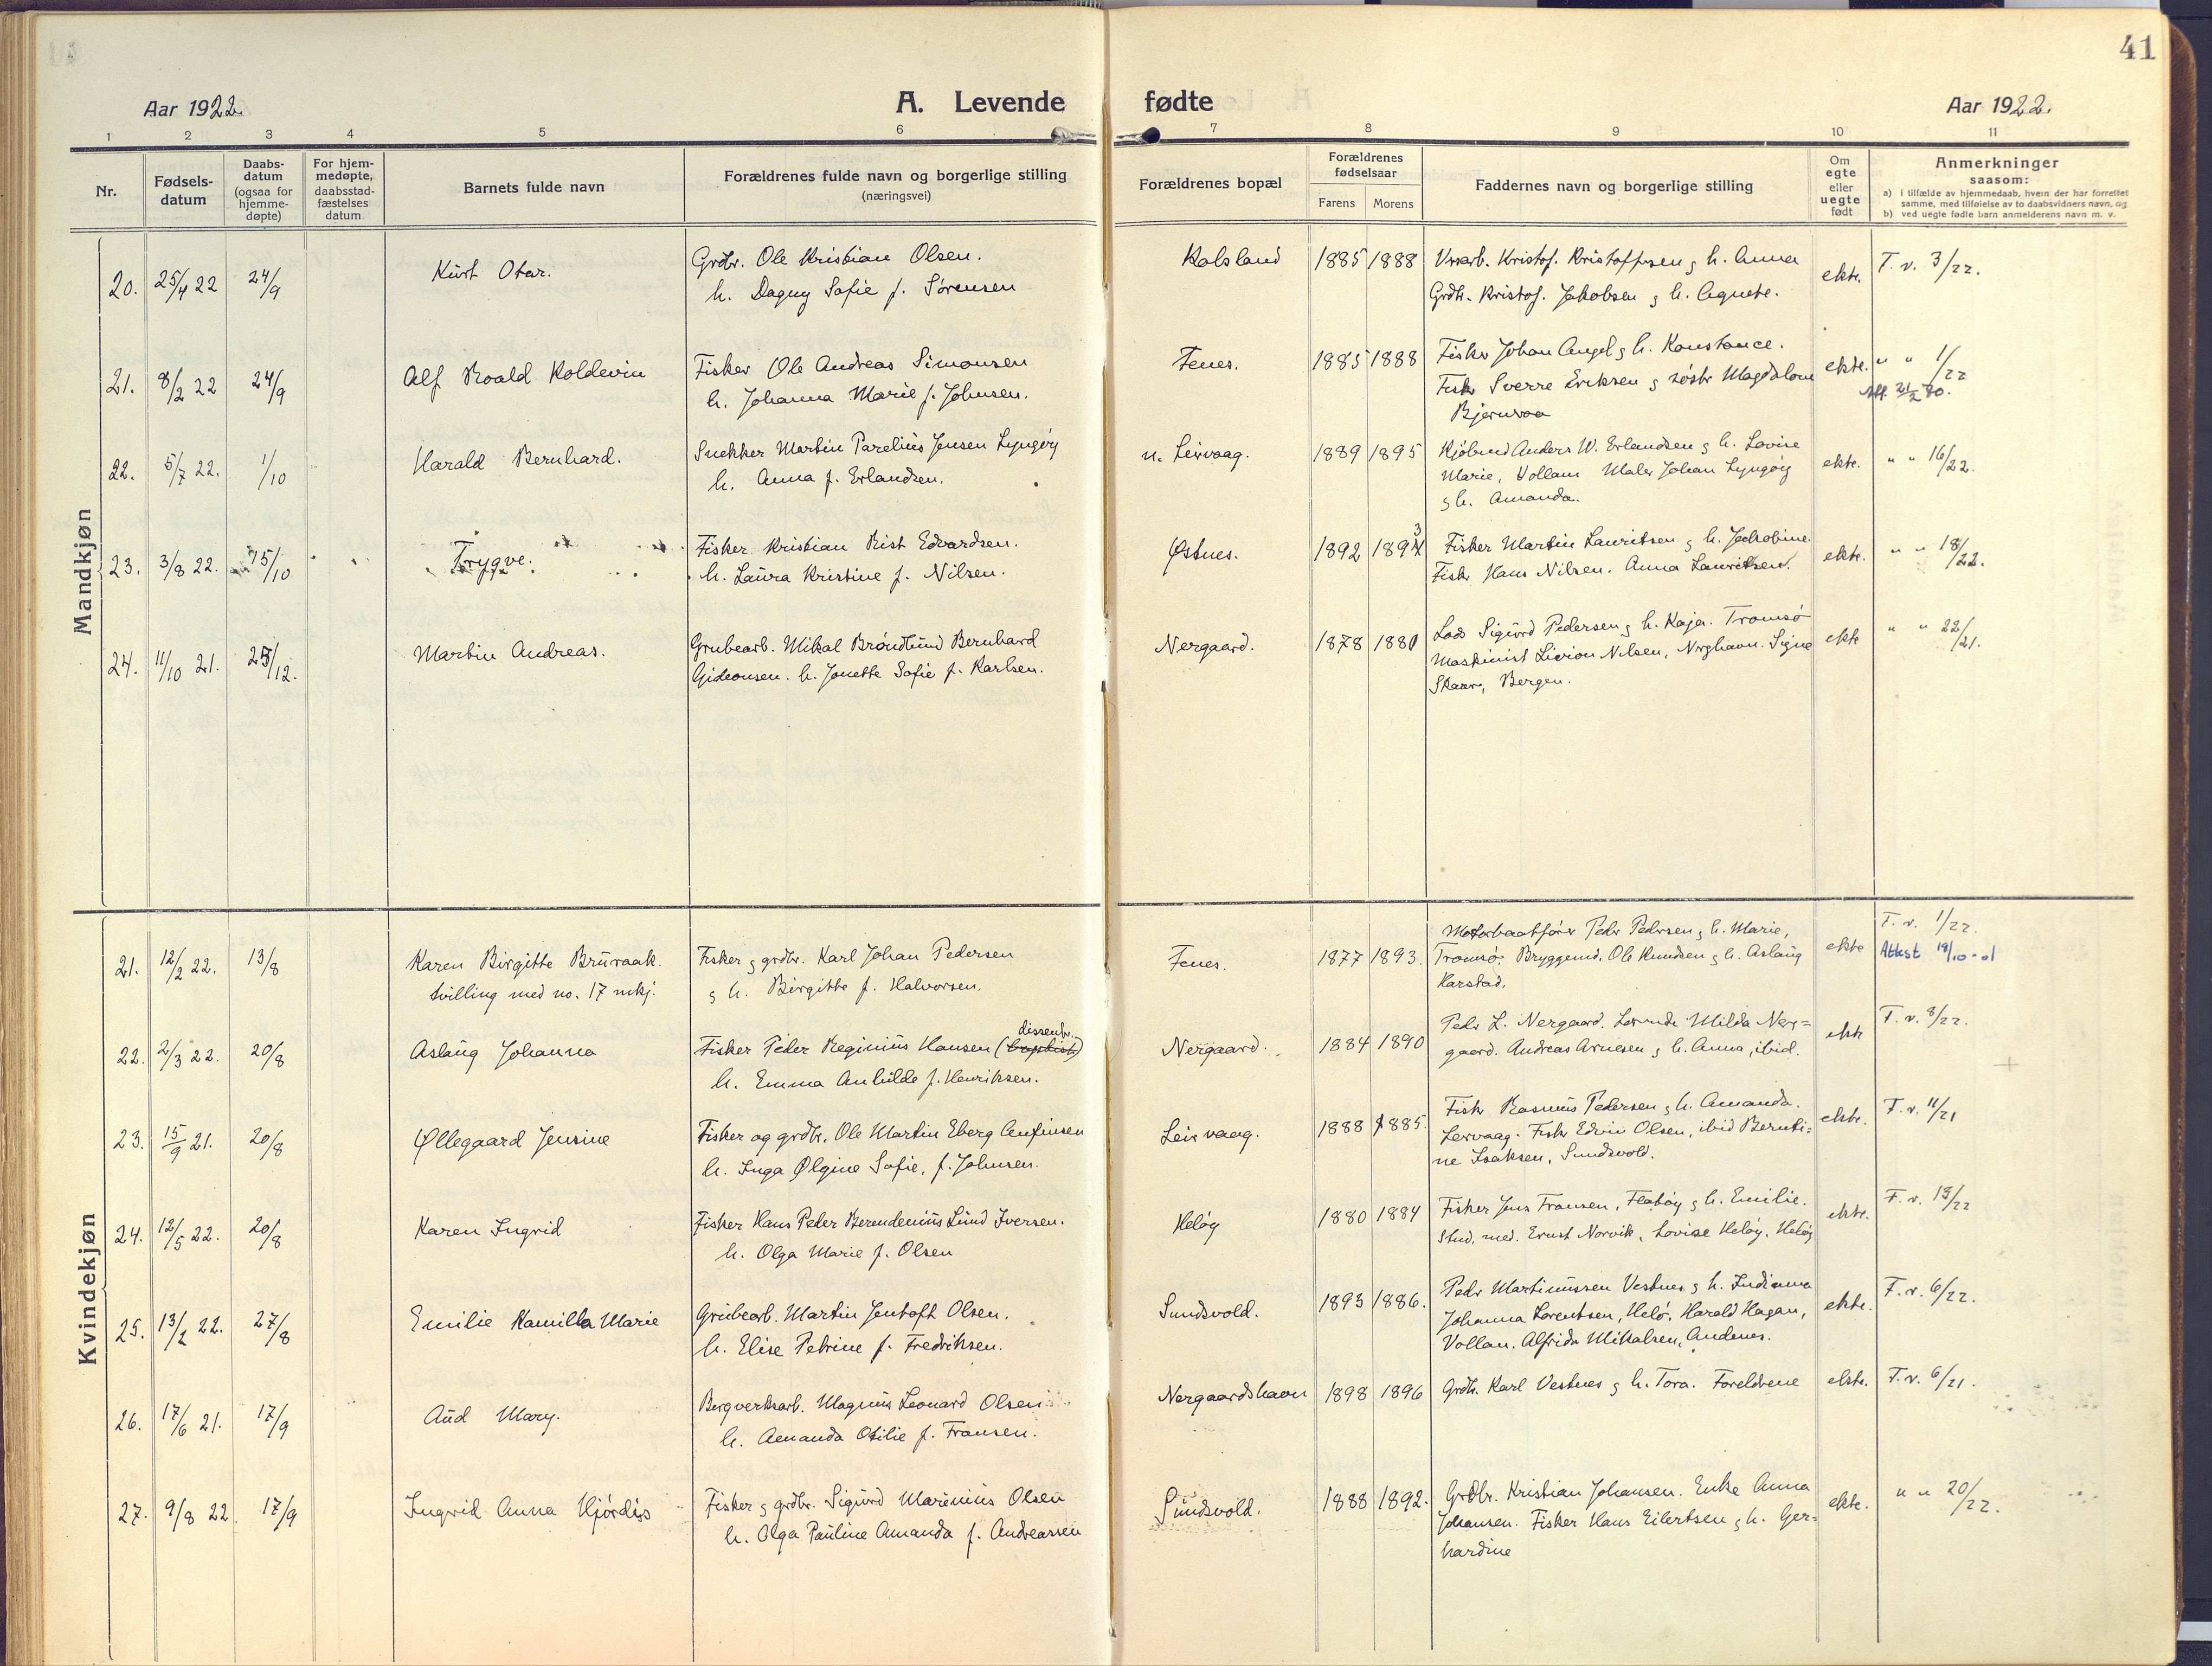 41
Aar 1922.
A. Levende fødte
Aar 1922.
1 2 3 4 5 6 7 8 9 10 11
Nr.
Fødsels-
datum
Daabs-
datum
(ogsaa for
hjemme-
døpte)
For hjem-
medøpte,
daabsstad-
fæstelses
datum
Barnets fulde navn
Forældrenes fulde navn og borgerlige stilling
(næringsvei)
Forældrenes bopæl
Forældrenes
fødselsaar
Farens Morens
Faddernes navn og borgerlige stilling
Om
egte
eller
uegte
født
Anmerkninger
saasom:
a) i tilfælde av hjemmedaab, hvem der har forrettet
samme, med tilføielse av to daabsvidners navn, og
b) ved uegte fødte barn anmelderens navn m. v.
Mandkjøn
20. 25/4 22 24/9
Kurt Otar.
Grdbr. Ole Kristian Olsen.
h. Dagny Sofie f. Sørensen
1885 1888
Kristof. Kristoffersen g h. Anna
Grdb. Kristof. Jakobsen g h. Agnete.
ekte.
T. v. 3/22.
21. 8/2 22 24/9
Alf Roald Koldevin
Fisker Ole Andreas Simonsen
h. Johanna Marie f. Johnsen.
Fenes.
1885 1888
Fisker Johan Angel g h. Konstance.
Fisk Sverre Eriksen g søstr Magdalone
Bjernvaa
ekte.
" " 1/22
22. 5/7 22. 1/10
Harald Bernhard.
Snekker Martin Parelius Jensen Lyngøy
h. Anna f. Erlandsen.
n. Leirvaag.
1889 1895
Kjøbmd Anders W. Erlandsen g h. Lovise
Marie, Vollam Maler Johan Lyngøy
g h. Amanda.
ekte.
" " 16/22.
23. 3/8 22. 15/10
Trygve.
Fisker Kristian Rist Edvardsen.
h. Laura Kristine f. Nilsen.
Østnes.
1892 1893
Fisker Martin Lauritsen g h. Jakobine.
Fiskr Hans Nilsen. Anna Lauritsen.
ekte.
" " 18/22.
24. 11/10 21. 25/12.
Martin Andreas.
Grubearb. Mikal Brøndlund Bernhard
Gideonsen. h. Jonette Sofie f. Karlsen.
Nergaard.
1878 1880
Lods Sigurd Pedersen g h. Kaja. Tromsø
Maskinist Nilsen, Nrghavn. Signe
Skaar, Bergen.
ekte
" " 22/21.
Kvindekjøn
21. 12/2 22. 13/8
Karen Birgitte Bruraak.
tvilling med no. 17 mkj.
Fisker g grdbr. Karl Johan Pedersen
g h. Birgitte f. Halvorsen.
Fenes.
1877 1893.
Motorbaatfører Pedr Pedersen g h. Marie,
Tromsø. Bryggemd. Ole Knudsen g h. Aslaug
Harstad.
ekte
T. v. 1/22.
Attest 19/10-01
22. 2/3 22. 20/8
Aslaug Johanna
dissentr.
Fisker Peder Reginius Hansen (baptist)
h. Emma Anhilde f. Henriksen.
Nergaard.
1884 1890
Pedr L. Nergaard. Milda Ner=
gaard. Andreas Arnesen g h. Anna, ibid.
ekte
T. v. 8/22.
23. 15/9 21. 20/8
Øllegaard Jensine
Fisker og grdbr. Ole Martin Eberg Anfinsen
h. Inga Ølgine Sofie, f. Johnsen.
Leirvaag.
1888 1885.
Fiskr Rasmus Pedersen g h. Amanda.
Leirvaag. Fiskr Edvin Olsen, ibid Bernti=
ne Isaksen, Sundsvold.
ekte.
T. v. 11/21
24. 12/5 22. 20/8
Karen Ingrid
Fisker Hans Peder Berendenius Lund Iversen.
h. Olga Marie f. Olsen
Heløy
1880 1884
Fisker Jens Fransen, Flatøy g h. Emilie.
Stud. med. Ernst Norvik, Lovise Heløy, Heløy
ekte.
T. v. 13/22
25. 13/2 22. 27/8
Emilie Kamilla Marie
Grubearb. Martin Jentoft Olsen.
h. Elise Petrine f. Fredriksen.
Sundsvold.
1893 1886.
Pedr Martinussen Vestnes g h. Indianna
Johanna Lorentsen, Helø. Harald Hagan,
Vollan. Alfrida Mikalsen, Andenes.
ekte.
T. v. 6/22.
26. 17/6 21. 17/9
Aud Mary.
Bergverksarb. Magnus Leonard Olsen
h. Amanda Otilie f. Fransen.
Nergaardshavn
1898 1896
Grdb. Karl Vestnes g h. Tora. Foreldrene
ekte.
T. v. 6/21.
27. 9/8 22 17/9
Ingrid Anna Hjørdis
Fisker g grdbr. Sigurd Marenius Olsen
h. Olga Pauline Amanda f. Andreassen
Sundsvold.
1888 1892.
Grdbr. Kristian Johansen. Enke Anna
Johansen. Fisker Hans Eilertsen g h. Ger=
hardine
ekte.
" " 20/22.